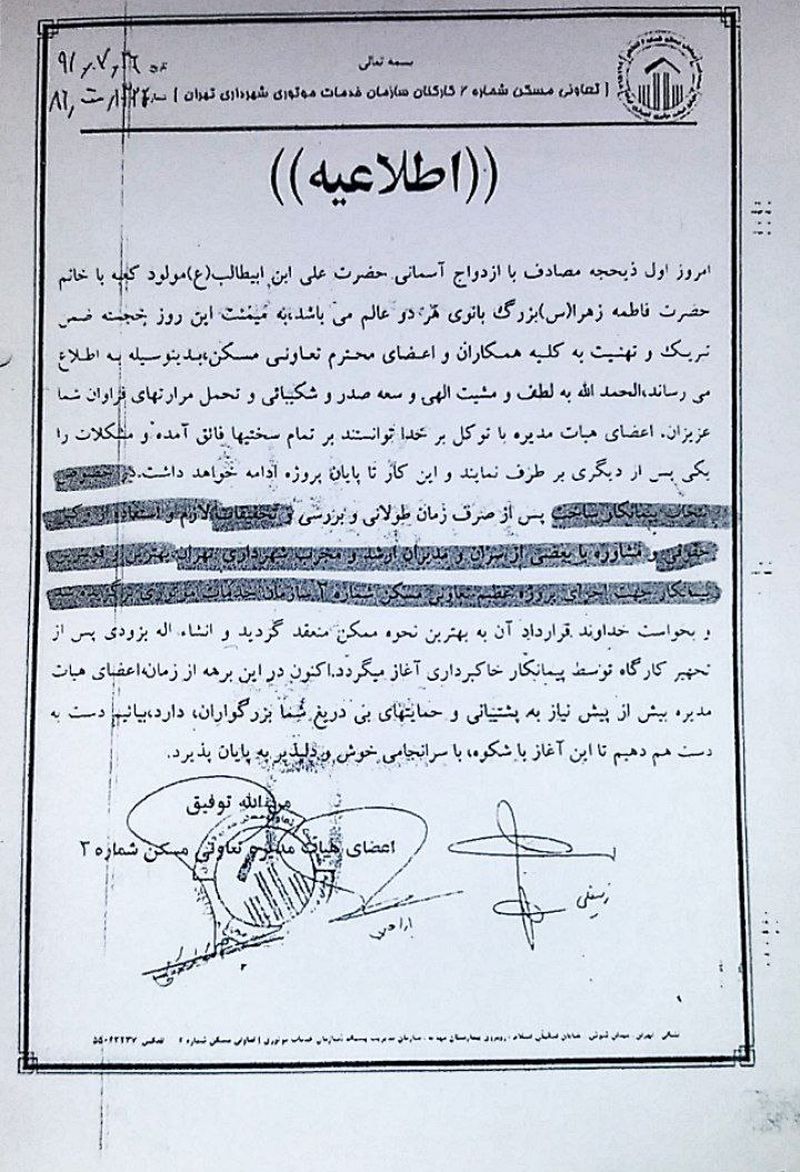 بسمه تعالی
تاریخ ۹۱/۷/۲۶
( تعاونی مسکن شماره ۲ کارکنان سازمان خدمات موتوری شهرداری تهران )
((اطلاعیه))
امروز اول ذیحجه مصادف با ازدواج آسمانی حضرت علی ابن ابیطالب(ع)مولود کعبه با خانم
حضرت فاطمه زهرا(س)بزرگ بانوی هر دو عالم می باشد،به میمنت این روز خجسته ضمن
تبریک و تهنیت به کلیه همکاران و اعضای محترم تعاونی مسکن،بدینوسیله به اطلاع
می رساند،الحمد الله به لطف و مشیت الهی و سعه صدر و شکیبائی و تحمل مرارتهای فراوان شما
عزیزان، اعضای هیات مدیره با توکل بر خدا توانستند بر تمام سختیها فائق آمده و مشکلات را
یکی پس از دیگری بر طرف نمایند و این کار تا پایان پروژه ادامه خواهد داشت.در خصوص
انتخاب پیمانکار ساخت پس از صرف زمان طولانی و بررسی و تحقیقات لازم و استفاده از وکیل
حقوقی و مشاوره با بعضی از سران و مدیران ارشد و مجرب شهرداری تهران بهترین و
پیمانکار جهت اجرای پروژه عظیم تعاونی مسکن شماره ۲ سازمان خدمات موتوری برگزیده شد
و بخواست خداوند قرارداد آن به بهترین نحوه ممکن منعقد گردید و انشاء اله بزودی پس از
تجهیز کارگاه توسط پیمانکار خاکبرداری آغاز میگردد.اکنون در این برهه از زمان،اعضای هیات
مدیره بیش از پیش نیاز به پشتیبانی و حمایتهای بی دریغ شما بزرگواران، دارد،بیائیم دست به
دست هم دهیم تا این آغاز با شکوه، با سرانجامی خوش و دلپذیر به پایان پذیرد.
من الله توفیق
اعضای هیات مدیره تعاونی مسکن شماره ۲
نشانی : تهران، میدان شوش، خیابان فدائیان اسلام ، روبروی بیمارستان ، سازمان مدیریت پسماند (سازمان خدمات موتوری) تعاونی مسکن شماره ۲ تلفکس ۵۵۰۶۲۲۳۷